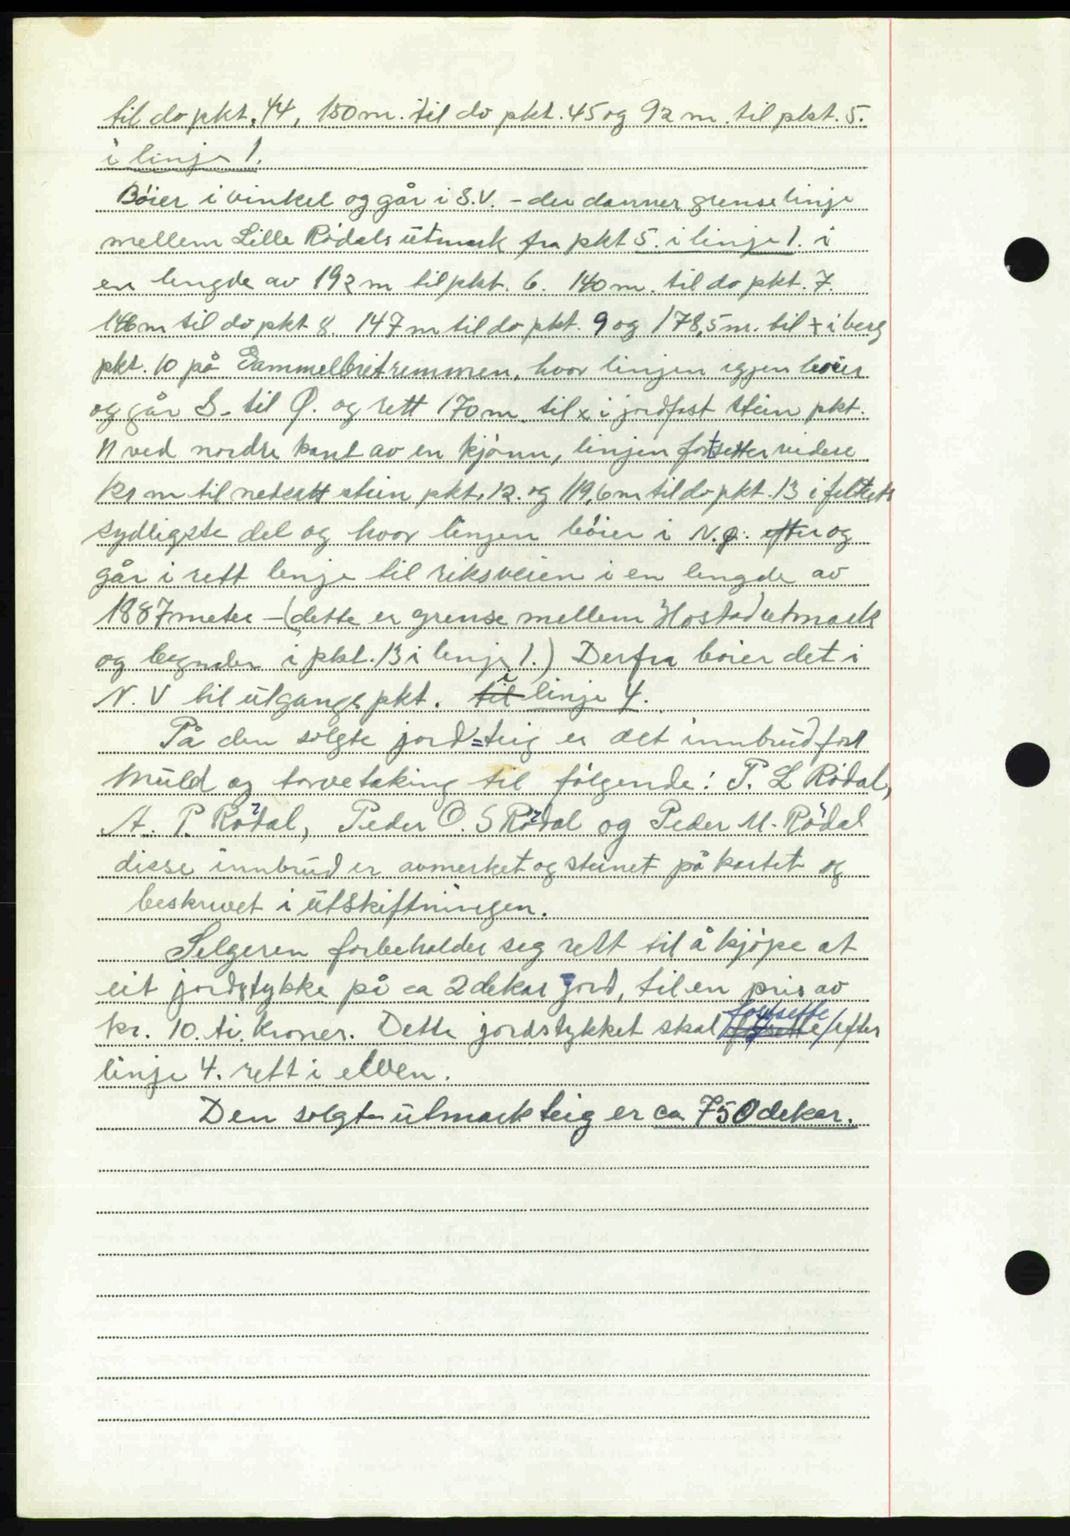 til do pkt. 44, 150 m. til do pkt. 45 og 92 m. til pkt. 5.
i linje 1.
Bøier i vinkel og går i S.V. – der danner grense linje
mellem Lille Rødals utmark fra pkt 5. i linje 1. i
en lengde av 192 m til pkt. 6. 140 m. til do pkt. 7.
146 m til do pkt 8. 147 m til do pkt. 9 og 178,5 m. til x i berg
pkt. 10 på hvor linjen igjen bøier
og går S. til Ø. og rett 170 m. til x i jordfast stein pkt.
11 ved nordre kant av en kjønn, linjen fortsetter videre
m til nedsatt stein pkt. 12. og 119,6 m til do pkt. 13 i feltets
sydligste del og hvor linjen bøier i N.Ø. efter og
går i rett linje til riksveien i en lengde av
1887 meter – (dette er grense mellem Hostad utmark
og begynder i pkt. 13 i linje 1.) Derfra bøier det i
N.V til utgangs pkt. til i linje 4.
På den solgte jord=teig er det innbrud for
muld og torvetaking til følgende: P. L Rødal,
A. P. Rødal, Peder O. S Rødal og Peder M. Rødal
disse innbrud er avmerket og steinet på kartet og
beskrevet i utskiftningen.
Selgeren forbeholder seg rett til å kjøpe at
eit jordstykke på ca 2 dekar jord, til en pris av
kr. 10. ti. kroner. Dette jordstykket skal fortsette / efter
linje 4. rett i elven.
Den solgte utmark teig er ca 750 dekar.